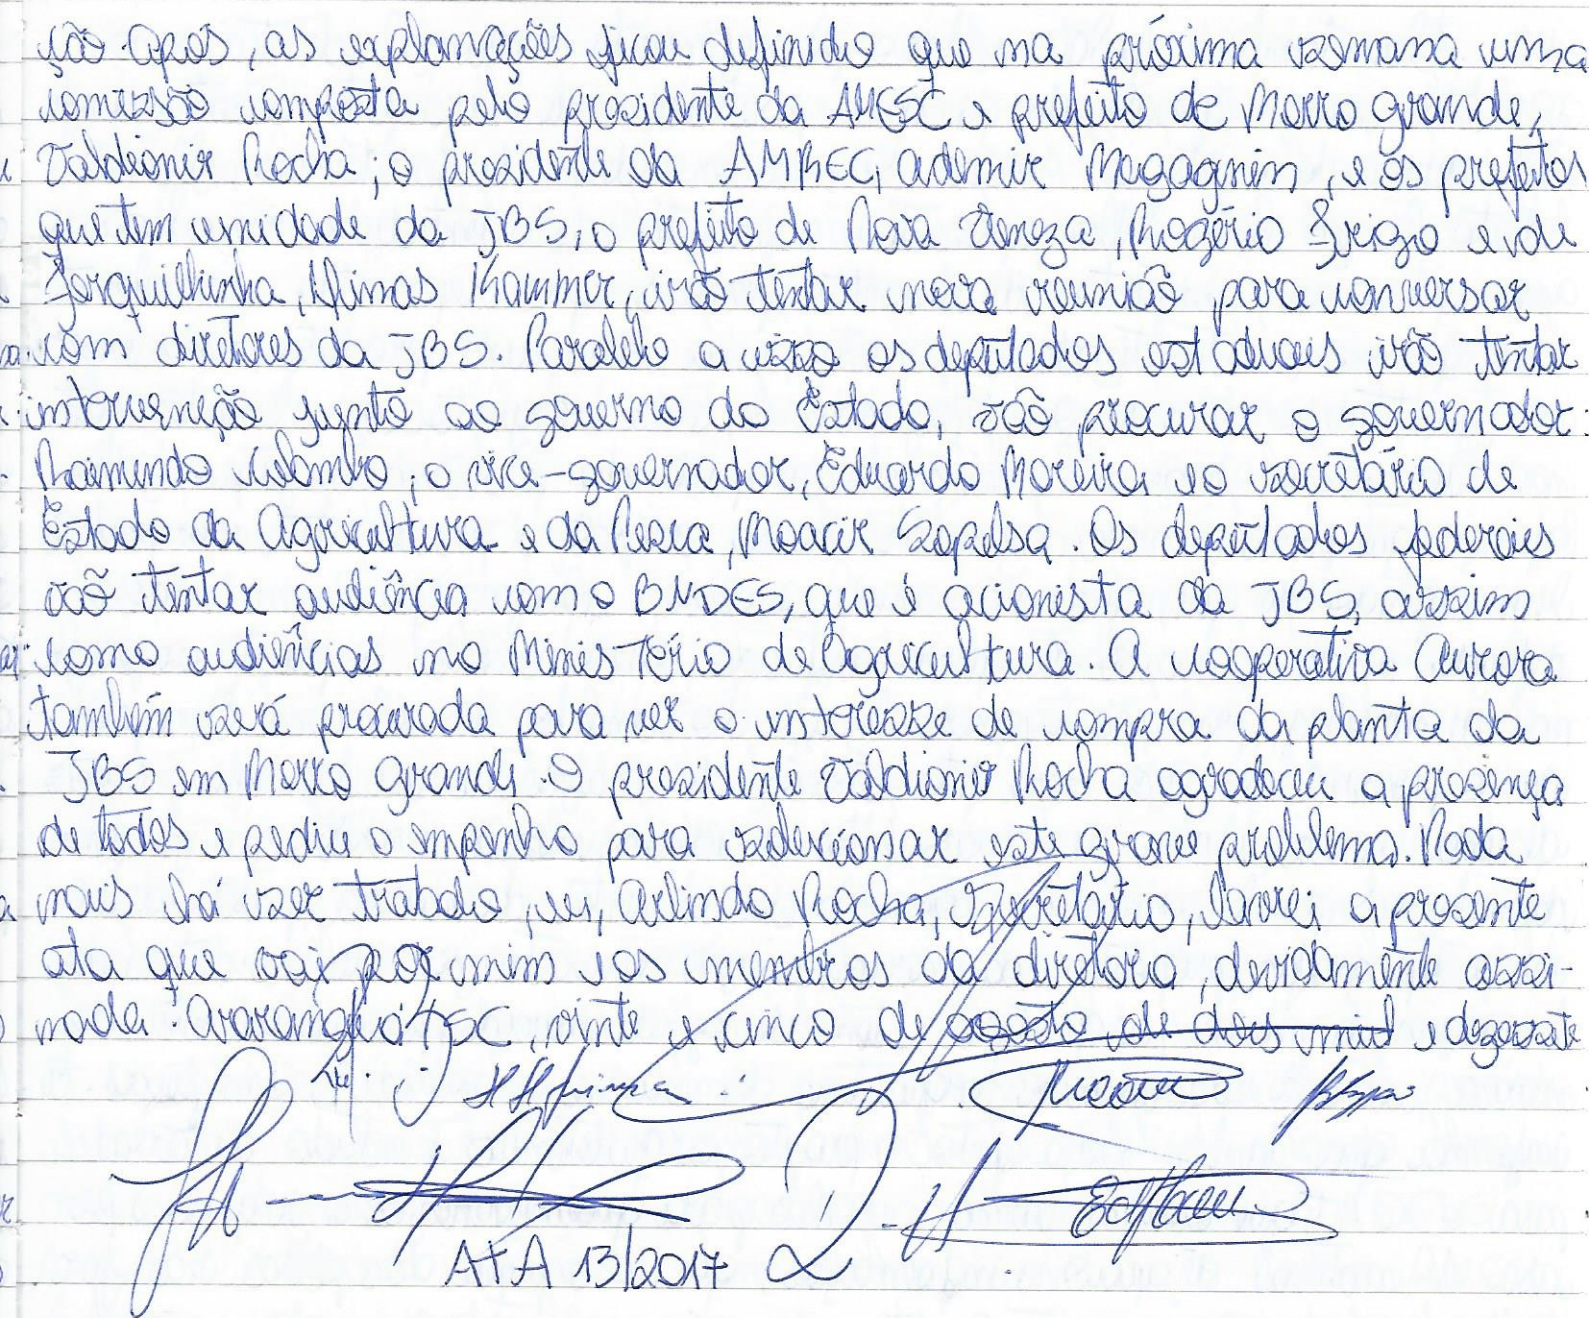 ção. Após, as explanações ficou definido que na próxima semana uma
comissão composta pelo presidente da AMESC e prefeito de Morro Grande,
Valdionir Rocha; o presidente da AMREC, Ademir Magagnin, e os prefeitos
que tem unidade da JBS, o prefeito de Nova Veneza, Rogério Frigo e de
Forquilhinha, Dimas Kammer, irão tentar nova reunião para conversar
com diretores da JBS. Paralelo a isso os deputados estaduais irão tentar
intervenção junto ao governo do Estado, vão procurar o governador:
Raimundo Colombo, o vice-governador, Eduardo Moreira e o secretário de
Estado da Agricultura e da Pesca, Moacir Sopelsa. Os deputados federais
vão tentar audiência com o BNDES, que é acionista da JBS, assim
como audiências no Ministério de Agricultura. A cooperativa Aurora
também será procurada para ver o interesse de compra da planta da
JBS em Morro Grande. O presidente Valdionir Rocha agradeceu a presença
de todos e pediu o empenho para solucionar este grave problema. Nada
mais há ser tratado, eu, Arlindo Rocha, Secretário, lavrei a presente
ata que vai por mim e os membros da diretoria, devidamente assi-
nada. Araranguá/SC, vinte e cinco de agosto de dois mil e dezessete
ATA 13/2017